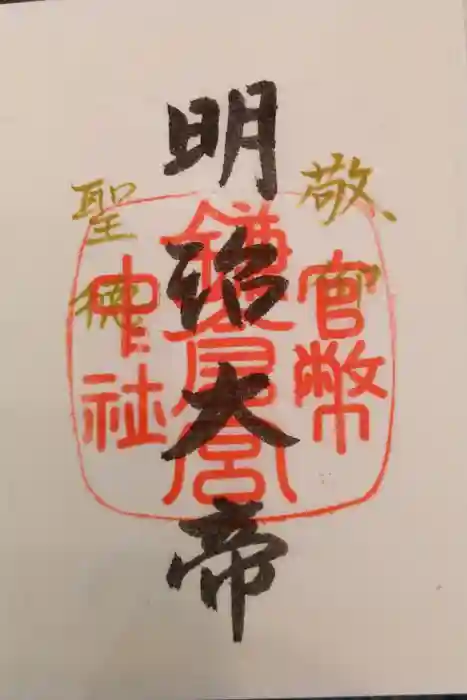 敬
官幣
明治大帝
鎌倉宮
聖徳
中社